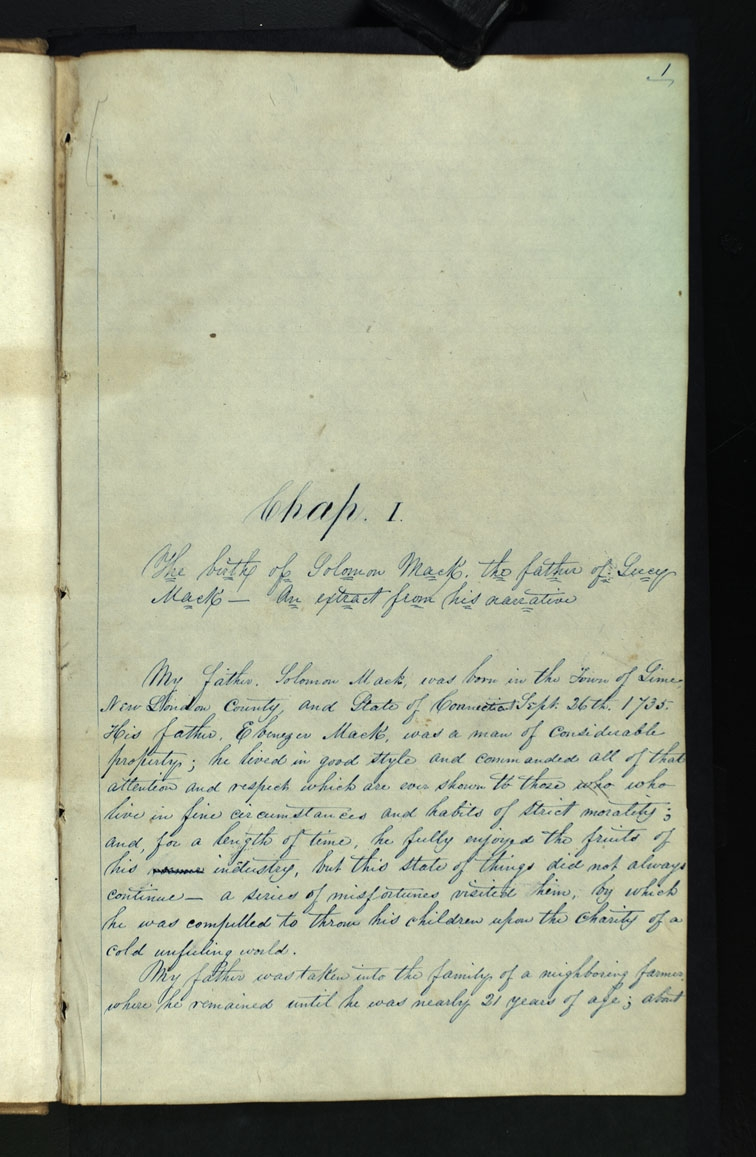 1
Chap. I.
The birth of Solomon Mack, the father of Lucy
Mack — An extract from his narrative
My father, Solomon Mack, was born in the Town of Lime
New London County, and State of Connecticut Sept. 26th. 1735.
His father, Ebenezer Mack, was a man of considerable
property; he lived in good style and commanded all of that
attention and respect which are ever shown to those who who
live in fine circumstances and habits of strict morality;
and, for a length of time, he fully enjoyed the fruits of
his industry, but this state of things did not always
continue — a series of misfortunes visited him, by which
he was compelled to throw his children upon the charity of a
cold unfeeling world.
My father was taken into the family of a neighboring farmer
where he remained until he was nearly 21 years of age; about